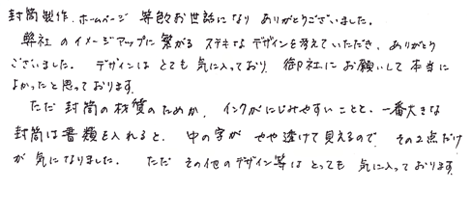 封筒製作、ホームページ 等色々お世話になり ありがとうございました。
弊社のイメージアップに繋がる ステキなデザインを考えていただき、ありがとう
ございました。 デザインは とても気に入っており、御社にお願いして本当に
よかったと思っております。
ただ 封筒の材質のためか、インクがにじみやすいことと、一番大きな
封筒は書類を入れると、中の字が やや透けて見えるので その2点だけ
が気になりました。 ただ その他のデザイン等は とっても 気に入っております。